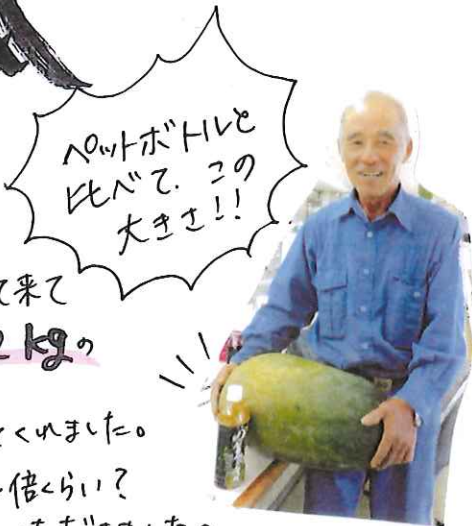 ペットボトルと
比べて、この
大きさ!!
て来て
2kgの
てくれました。
倍くらい?